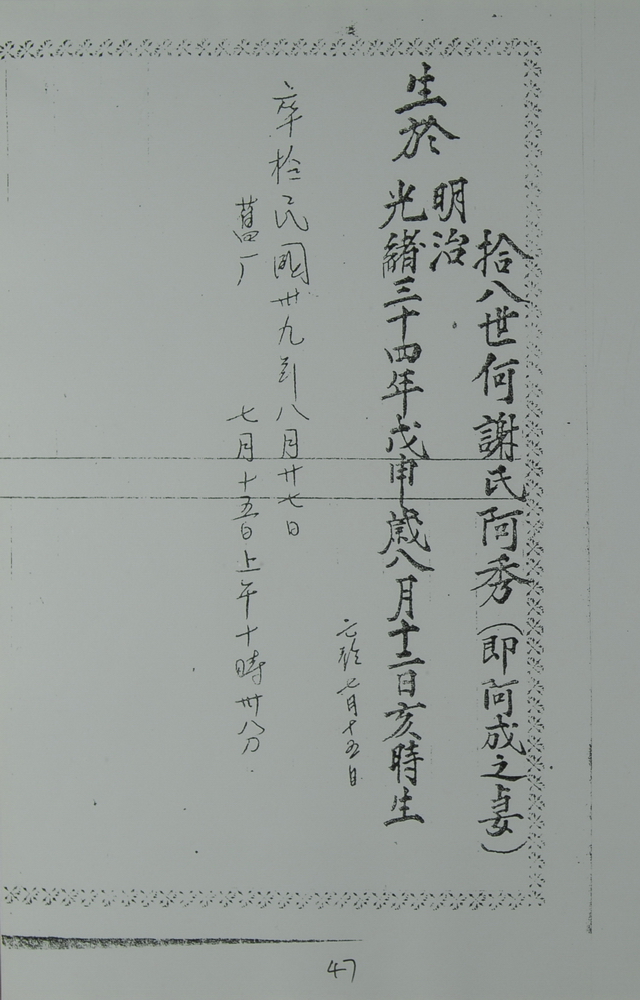 拾八世何謝氏阿秀（即阿成之妻）
生於
明治
光緒三十四年戊申歲八月十二日亥時生
七月十五日
卒於民國卅九年八月廿七日
舊
七月十五日上午十時卅八分
47